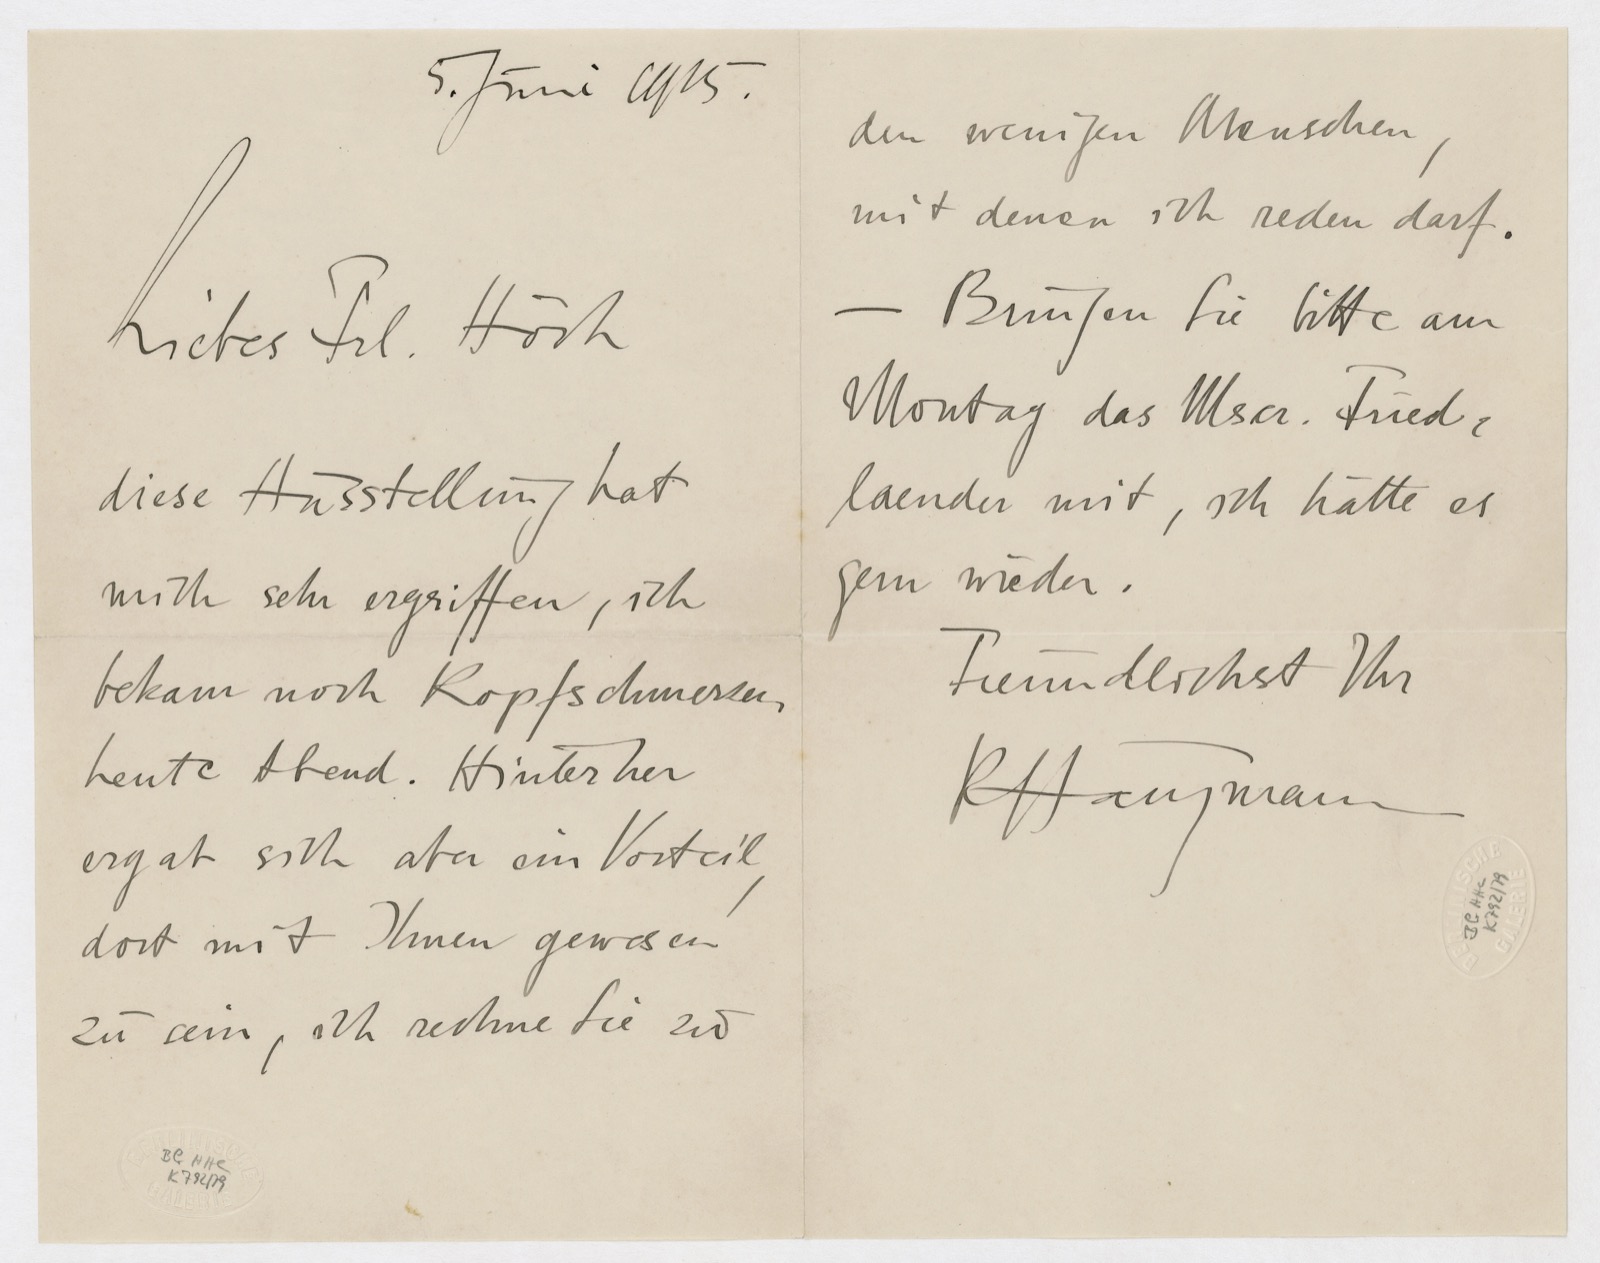 5. Juni 1915.
Liebes Frl. Höch
diese Ausstellung hat
mich sehr ergriffen, ich
bekam noch Kopfschmerzen,
heute Abend. Hinterher
ergab sich aber ein Vorteil,
dort mit Ihnen gewesen
zu sein, ich rechne Sie zu
BG HHC
K 792/79
den wenigen Menschen,
mit denen ich reden darf.
— Bringen Sie bitte am
Montag das Mscr. Fried-
laender mit, ich hätte es
gern wieder.
Freundlichst Ihr
RHausmann
BERLINISCHE
GALERIE
BG HHC
K 792/79